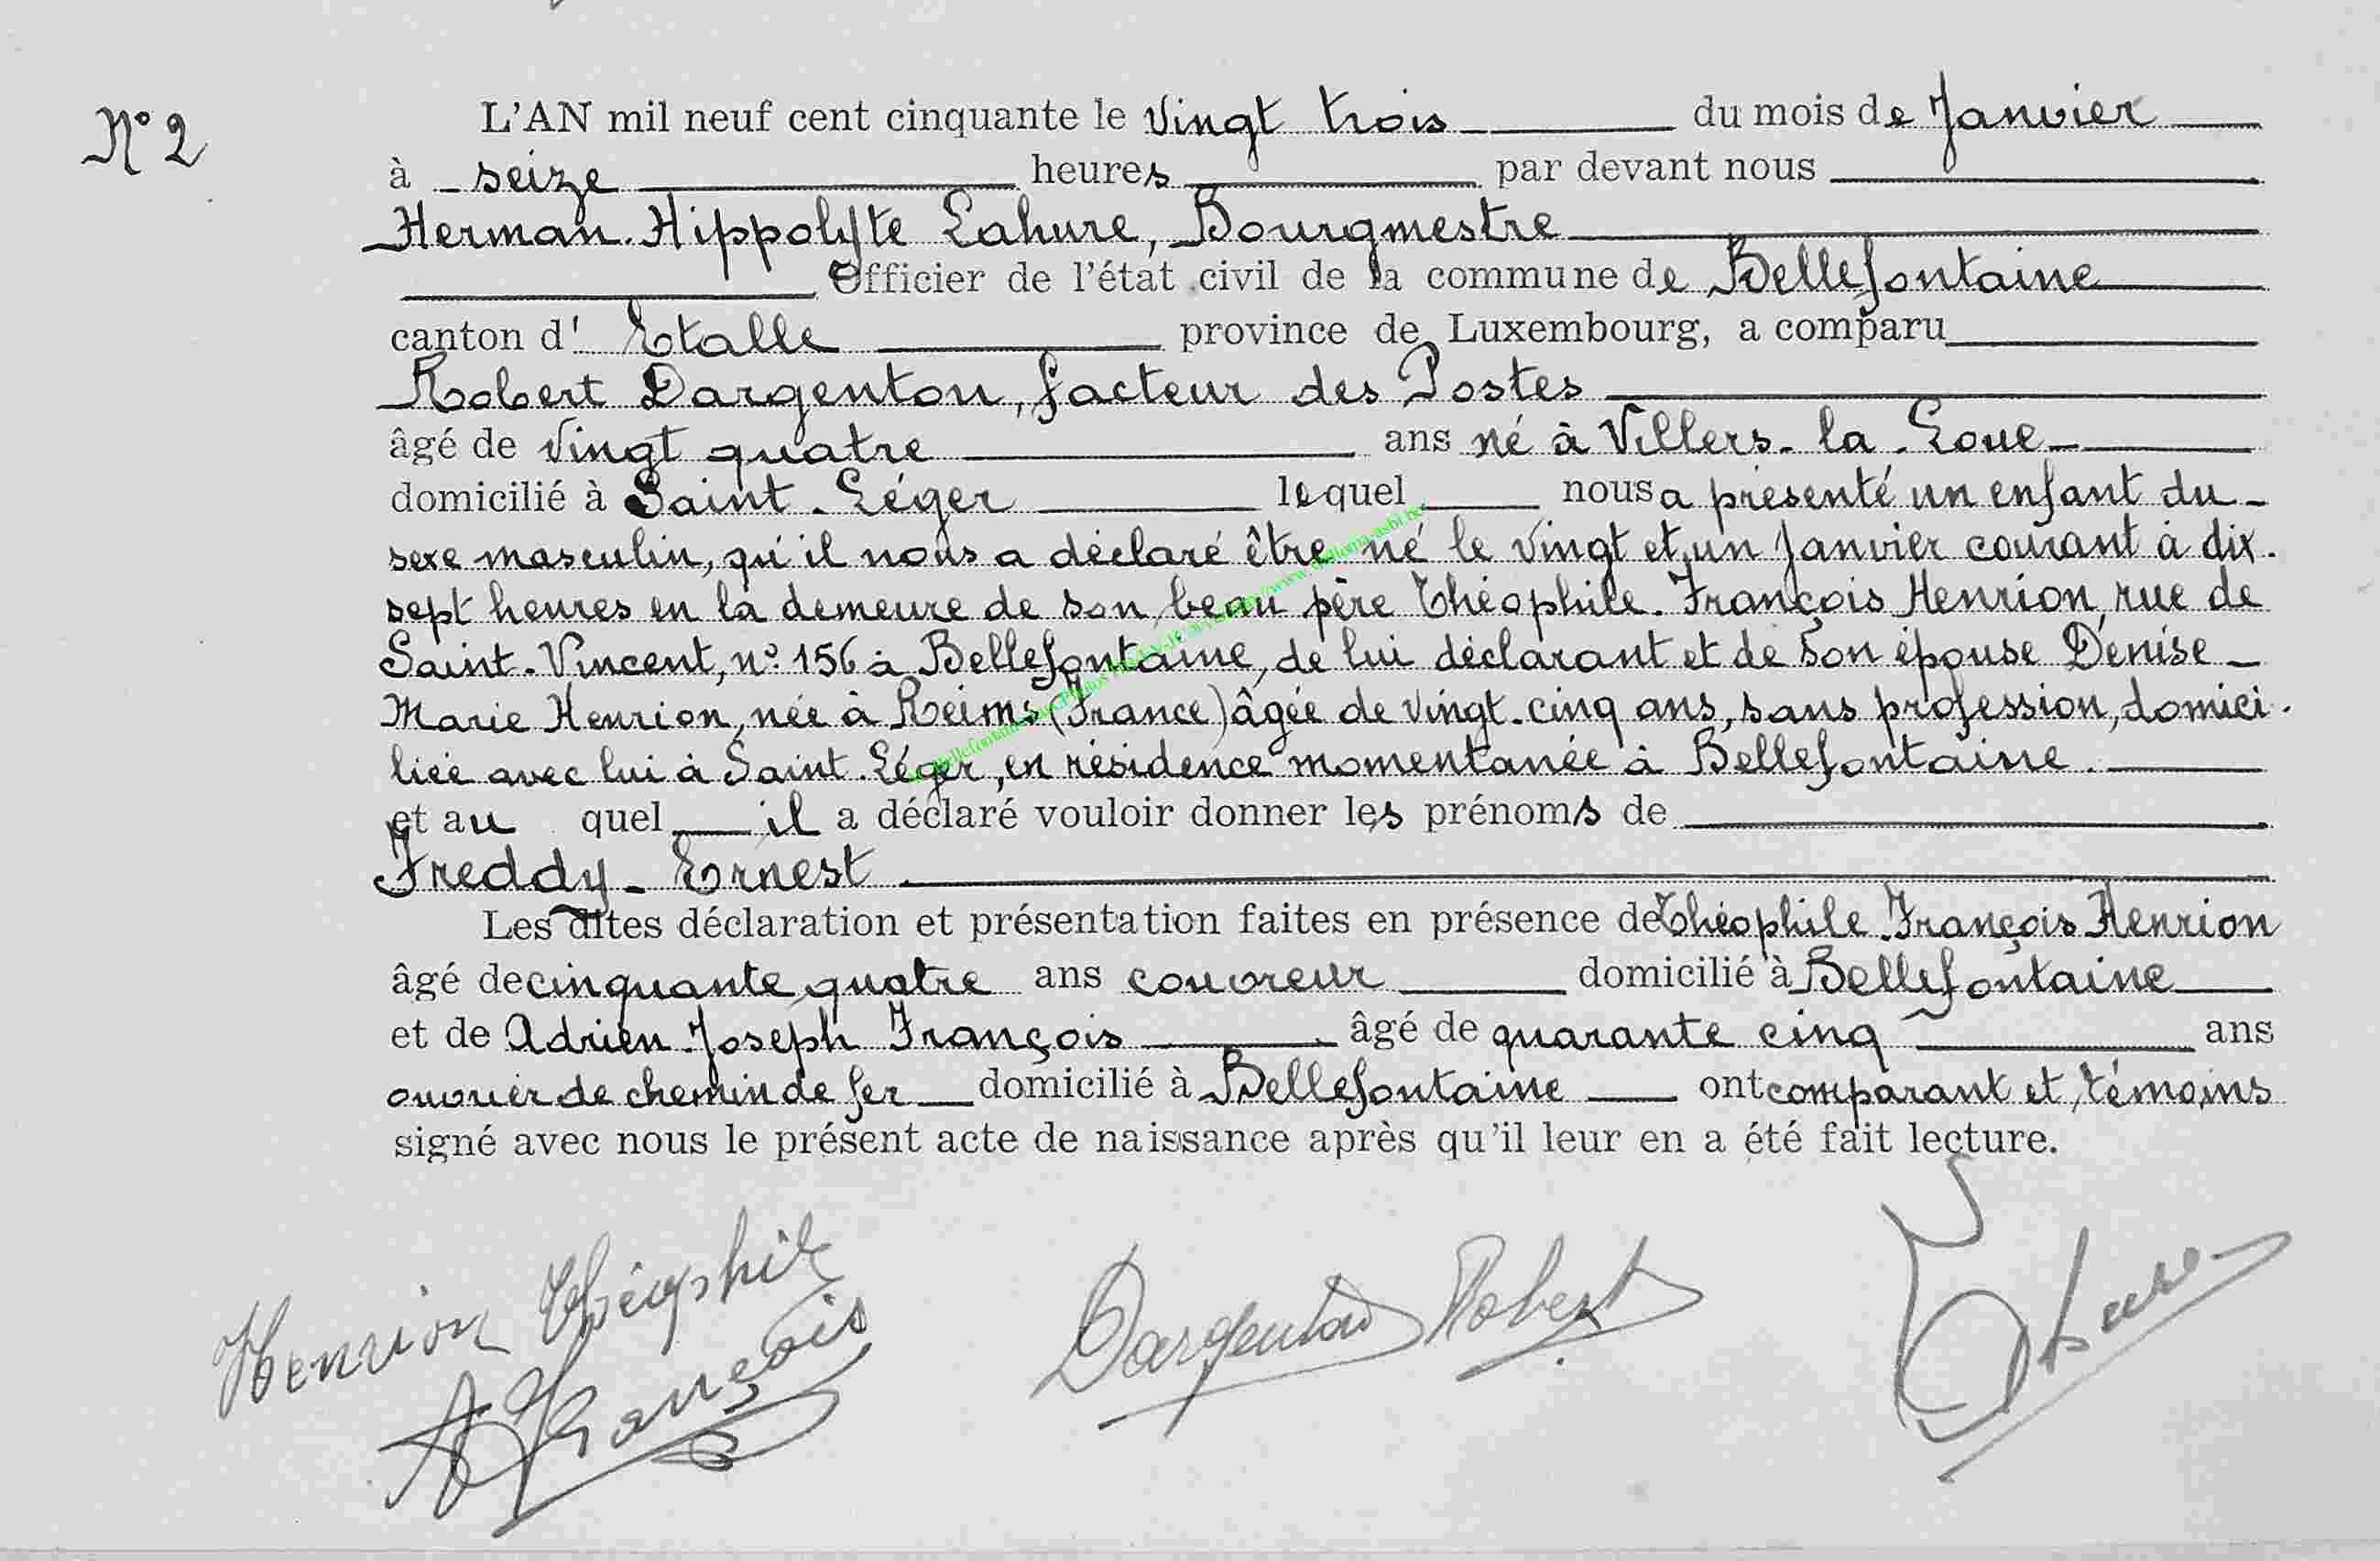 N° 2
L'AN mil neuf cent cinquante le vingt trois du mois de Janvier
à seize heures par devant nous
Herman-Hippolyte Lahure, Bourgmestre
Officier de l'état civil de la commune de Bellefontaine
canton d' Etalle province de Luxembourg, a comparu
Robert Dargenton, facteur des Postes
âgé de vingt quatre ans né à Villers-la-Loue
domicilié à Saint-Léger lequel nous a présenté un enfant du
sexe masculin, qu'il nous a déclaré être né le vingt et un Janvier courant à dix-
sept heures en la demeure de son beau père Théophile-François Henrion, rue de
Saint-Vincent, n° 156 à Bellefontaine, de lui déclarant et de son épouse Denise-
Marie Henrion, née à Reims (France) âgée de vingt-cinq ans, sans profession, domici-
liée avec lui à Saint-Léger, en résidence momentanée à Bellefontaine.
et au quel il a déclaré vouloir donner les prénoms de
Freddy-Ernest
Les dites déclaration et présentation faites en présence de Théophile-François Henrion
âgé de cinquante quatre ans couvreur domicilié à Bellefontaine
et de Adrien-Joseph François âgé de quarante cinq ans
ouvrier de chemin de fer domicilié à Bellefontaine ont comparant et témoins
signé avec nous le présent acte de naissance après qu'il leur en a été fait lecture.
Henrion Théophile
A François
Dargenton Robert